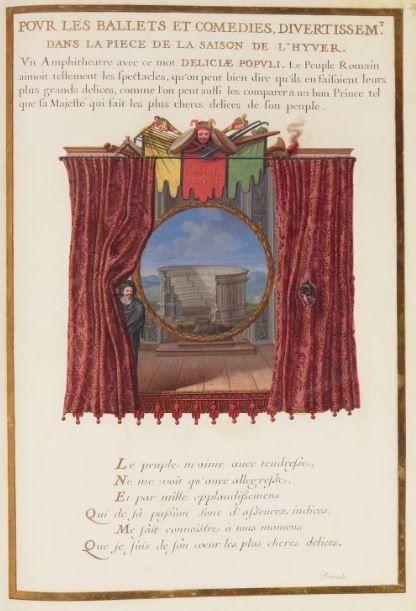 POVR LES BALLETS ET COMEDIES, DIVERTISSEM.T
DANS LA PIECE DE LA SAISON DE L'HYVER.
Vn Amphitheatre avec ce mot DELICIÆ POPVLI. Le Peuple Romain
aimoit tellement les spectacles, qu'on peut bien dire qu'ils en faisoient leurs
plus grands delices, comme l'on peut aussi les comparer a un bon Prince tel
que sa Majesté qui fait les plus cheres delices de son peuple.
DELICIÆ
POPVLI
Le peuple m'aime avec tendresse,
Ne me voit qu'avec allegresse,
Et par mille applaudissemens
Qui de sa passion sont d'asseurez indices,
Me fait connoistre a tous momens
Que je suis de son cœur les plus cheres delices.